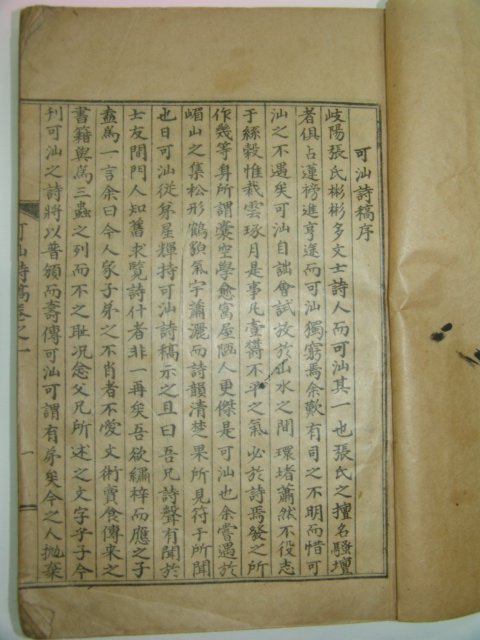 可汕詩稿序
岐陽張氏彬彬多文士詩人而可汕其一也張氏之擅名騷壇
者俱占蓮榜進亨途而可汕獨窮焉余歎有司之不明而惜可
汕之不遇矣可汕自詘會試放於山水之間環堵蕭然不役志
于絲穀惟裁雲琢月是事凡壹欝不平之氣必於詩焉發之所
作幾等身所謂囊空學愈富屋陋人更傑是可汕也余嘗遇於
嵋山之集松形鶴貌氣宇蕭灑而詩韻清楚果所見符于所聞
也日可汕從弟星輝持可汕詩稿示之且曰吾兄詩聲有聞於
士友間門人知舊求覽詩什者非一再矣吾欲繡梓而應之子
盍爲一言余曰今人家子弟之不肖者不愛文術賣食傳來之
書籍與爲三蟲之列而不之耻况念父兄所述之文字乎子今
刊可汕之詩將以普頒而壽傳可汕可謂有弟矣今之人拋棄
可汕詩稿卷之一
一